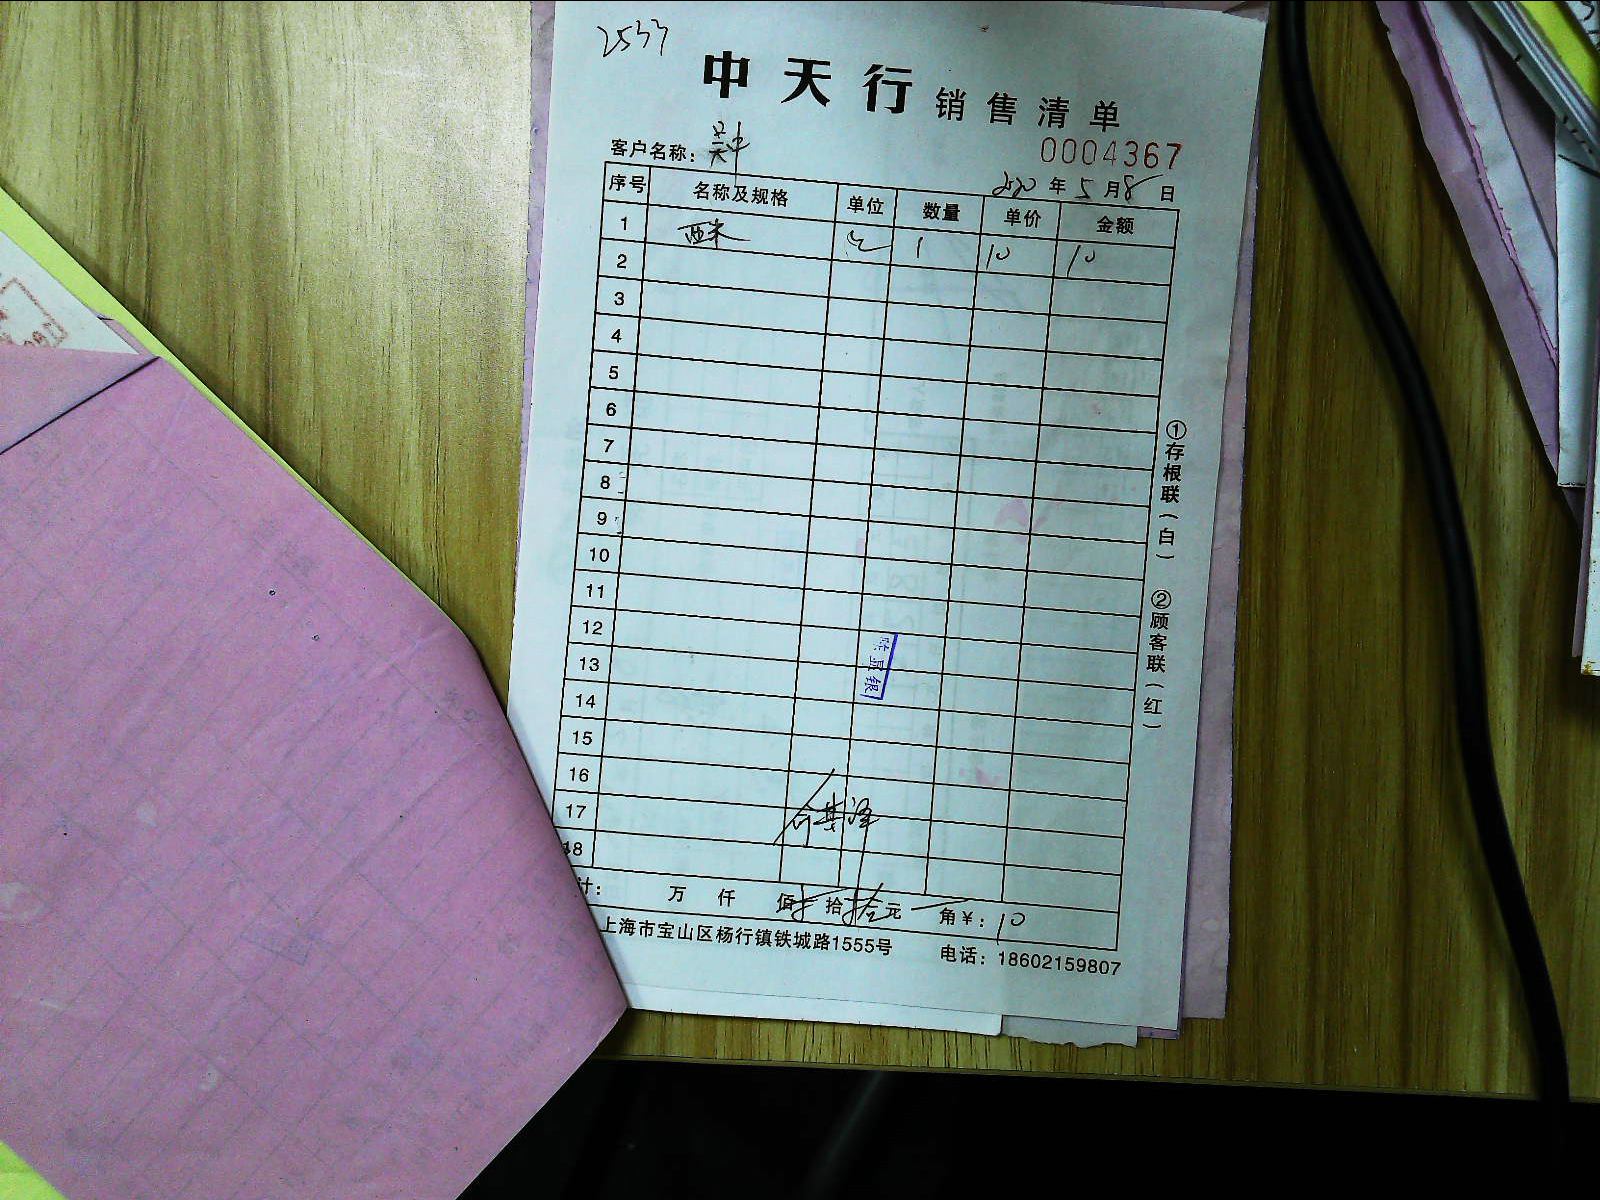 2533
中天行 销售清单
0004367
客户名称：吴中
2020 年 5 月 8 日
序号 名称及规格 单位 数量 单价 金额
1 西米 包 1 10 10
2
3
4
5
6
7
8
9
10
11
12
13
14
15
16
17
18
计： 万 仟 佰 拾 元 角 ￥：10
上海市宝山区杨行镇铁城路1555号 电话：18602159807
①存根联（白） ②顾客联（红）